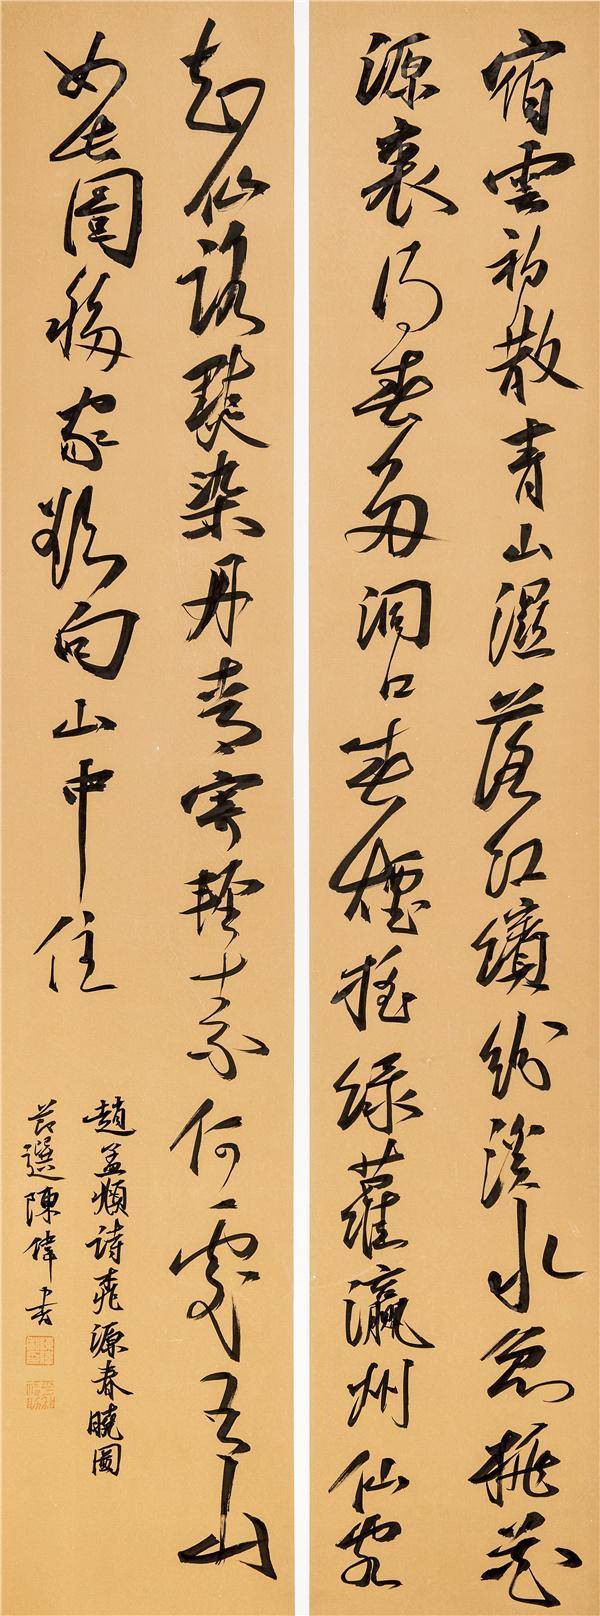 宿雲初散青山濕落紅繽紛溪水急桃花
源裏得春多洞口春煙搖綠蘿瀛州仙客
知仙路點染丹青寄輕素何處有山
如此圖移家欲向山中住
趙孟頫詩桃源春曉圖
節選陳偉書